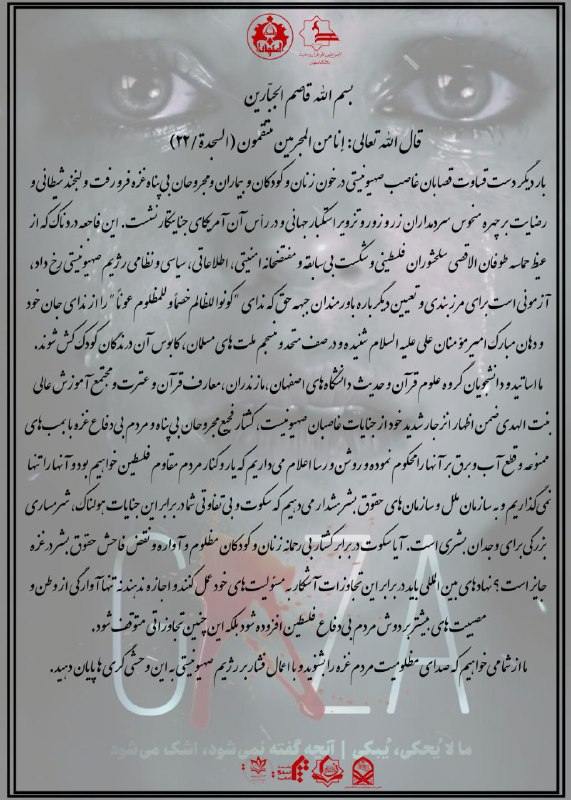 بسم الله قاصم الجبّارین
قال الله تعالی: إنا من المجرمین منتقمون (السجدة/۲۲)
بار دیگر دست قساوت قصابان غاصب صهیونیستی در خون زنان و کودکان و بیماران و مجروحان بی پناه غزه فرو رفت و لبخند شیطانی و
رضایت بر چهره منحوس سردمداران زر و زور و تزویر استکبار جهانی و در رأس آن آمریکای جنایتکار نشست. این فاجعه دردناک که از
غیظ حماسه طوفان الاقصی سلحشوران فلسطینی و شکست بی سابقه و مفتضحانه امنیتی، اطلاعاتی، سیاسی و نظامی رژیم صهیونیستی رخ داد،
آزمونی است برای مرزبندی و تعیین دیگر باره باورمندان جبهه حق که ندای "کونوا للظالم خصماً و للمظلوم عوناً" را از ندای جان خود
و دهان مبارک امیر مؤمنان علی علیه السلام شنیده و در صف متحد و منسجم ملت های مسلمان، کابوس آن درندگان کودک کش شوند.
ما اساتید و دانشجویان گروه علوم قرآن و حدیث دانشگاه های اصفهان، مازندران، معارف قرآن و عترت و مجتمع آموزش عالی
بنت الهدی ضمن اظهار انزجار شدید خود از جنایات غاصبان صهیونیست، کشتار فجیع مجروحان بی پناه و مردم بی دفاع غزه با بمب های
ممنوعه و قطع آب و برق بر آنها را محکوم نموده و روشن و رسا اعلام می داریم که یار و کنار مردم مقاوم فلسطین خواهیم بود و آنها را تنها
نمی گذاریم و به سازمان ملل و سازمان های حقوق بشر هشدار می دهیم که سکوت و بی تفاوتی شما در برابر این جنایات هولناک، شرمساری
بزرگی برای وجدان بشری است. آیا سکوت در برابر کشتار بی رحمانه زنان و کودکان مظلوم و آواره و نقض فاحش حقوق بشر در غزه
جایز است؟ نهادهای بین المللی باید در برابر این تجاوزات آشکار به مسئولیت های خود عمل کنند و اجازه ندهند نه تنها آوارگی از وطن و
مصیبت های بیشتر بر دوش مردم بی دفاع فلسطین افزوده شود بلکه این چنین تجاوزاتی متوقف شود.
ما از شما می خواهیم که صدای مظلومیت مردم غزه را بشنوید و با اعمال فشار بر رژیم صهیونیستی به این وحشی گری ها پایان دهید.
GAZA
ما لا یُحکی، یُبکی | آنچه گفته نمی‌شود، اشک می‌شود